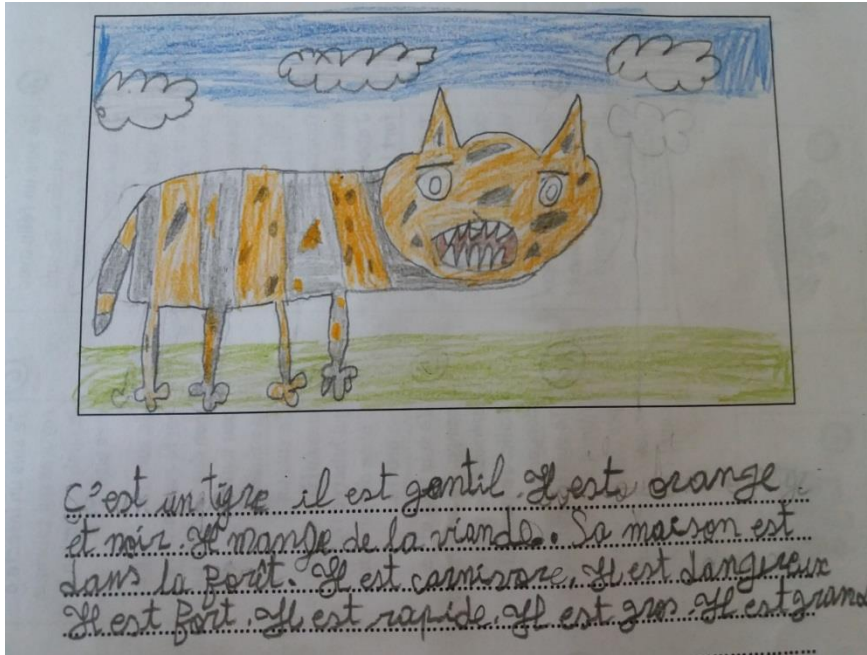 C'est un tigre il est gentil. Il est orange
et noir. Il mange de la viande. Sa maison est
dans la forêt. Il est carnivore. Il est dangereux
Il est fort. Il est rapide. Il est gros. Il est grand